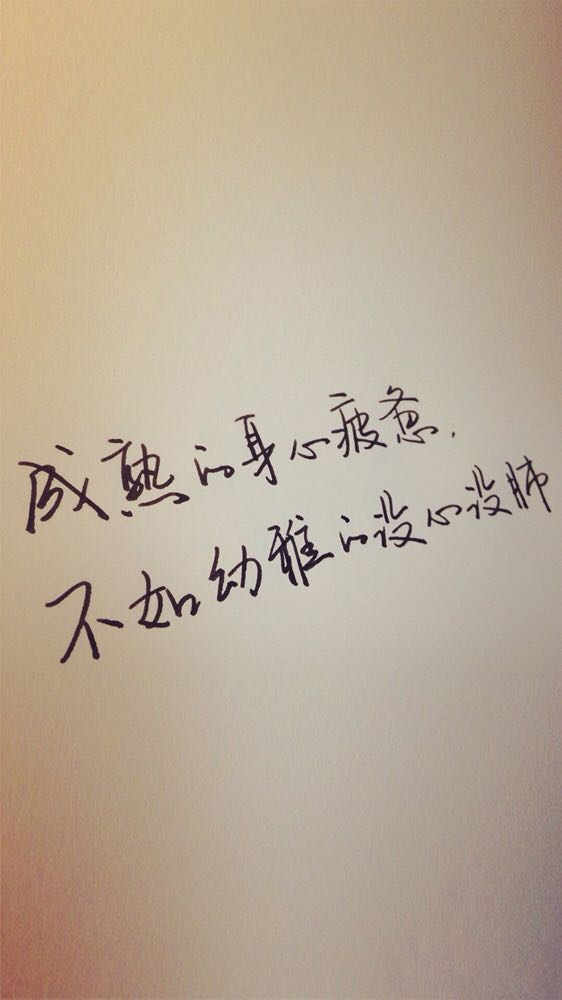 成熟的身心疲惫.
不如幼稚的没心没肺